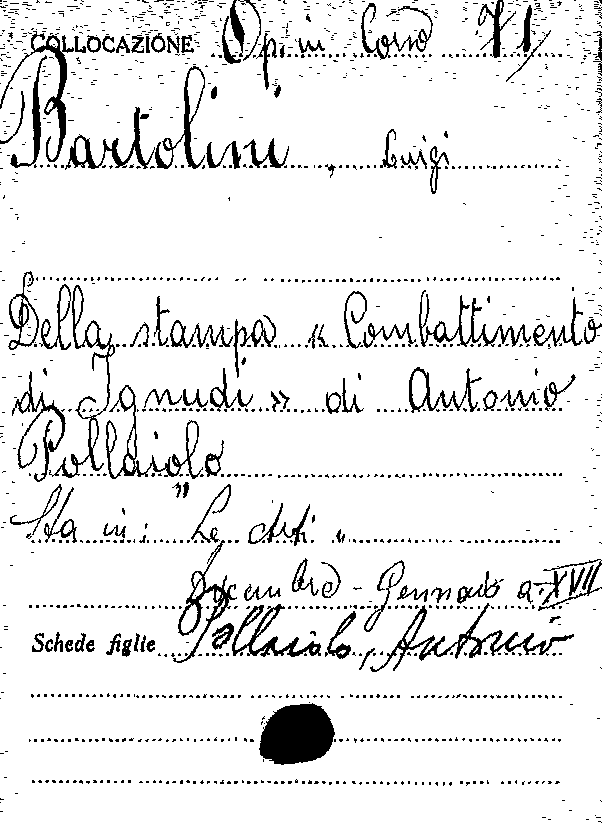 COLLOCAZIONE Op. in Corso 71
Bartolini, Luigi
Della stampa « Combattimento
di Ignudi » di Antonio
Pollaiolo
Sta in: "Le Arti"
Dicembre - Gennaio a. XVII
Schede figlie Pollaiolo, Antonio